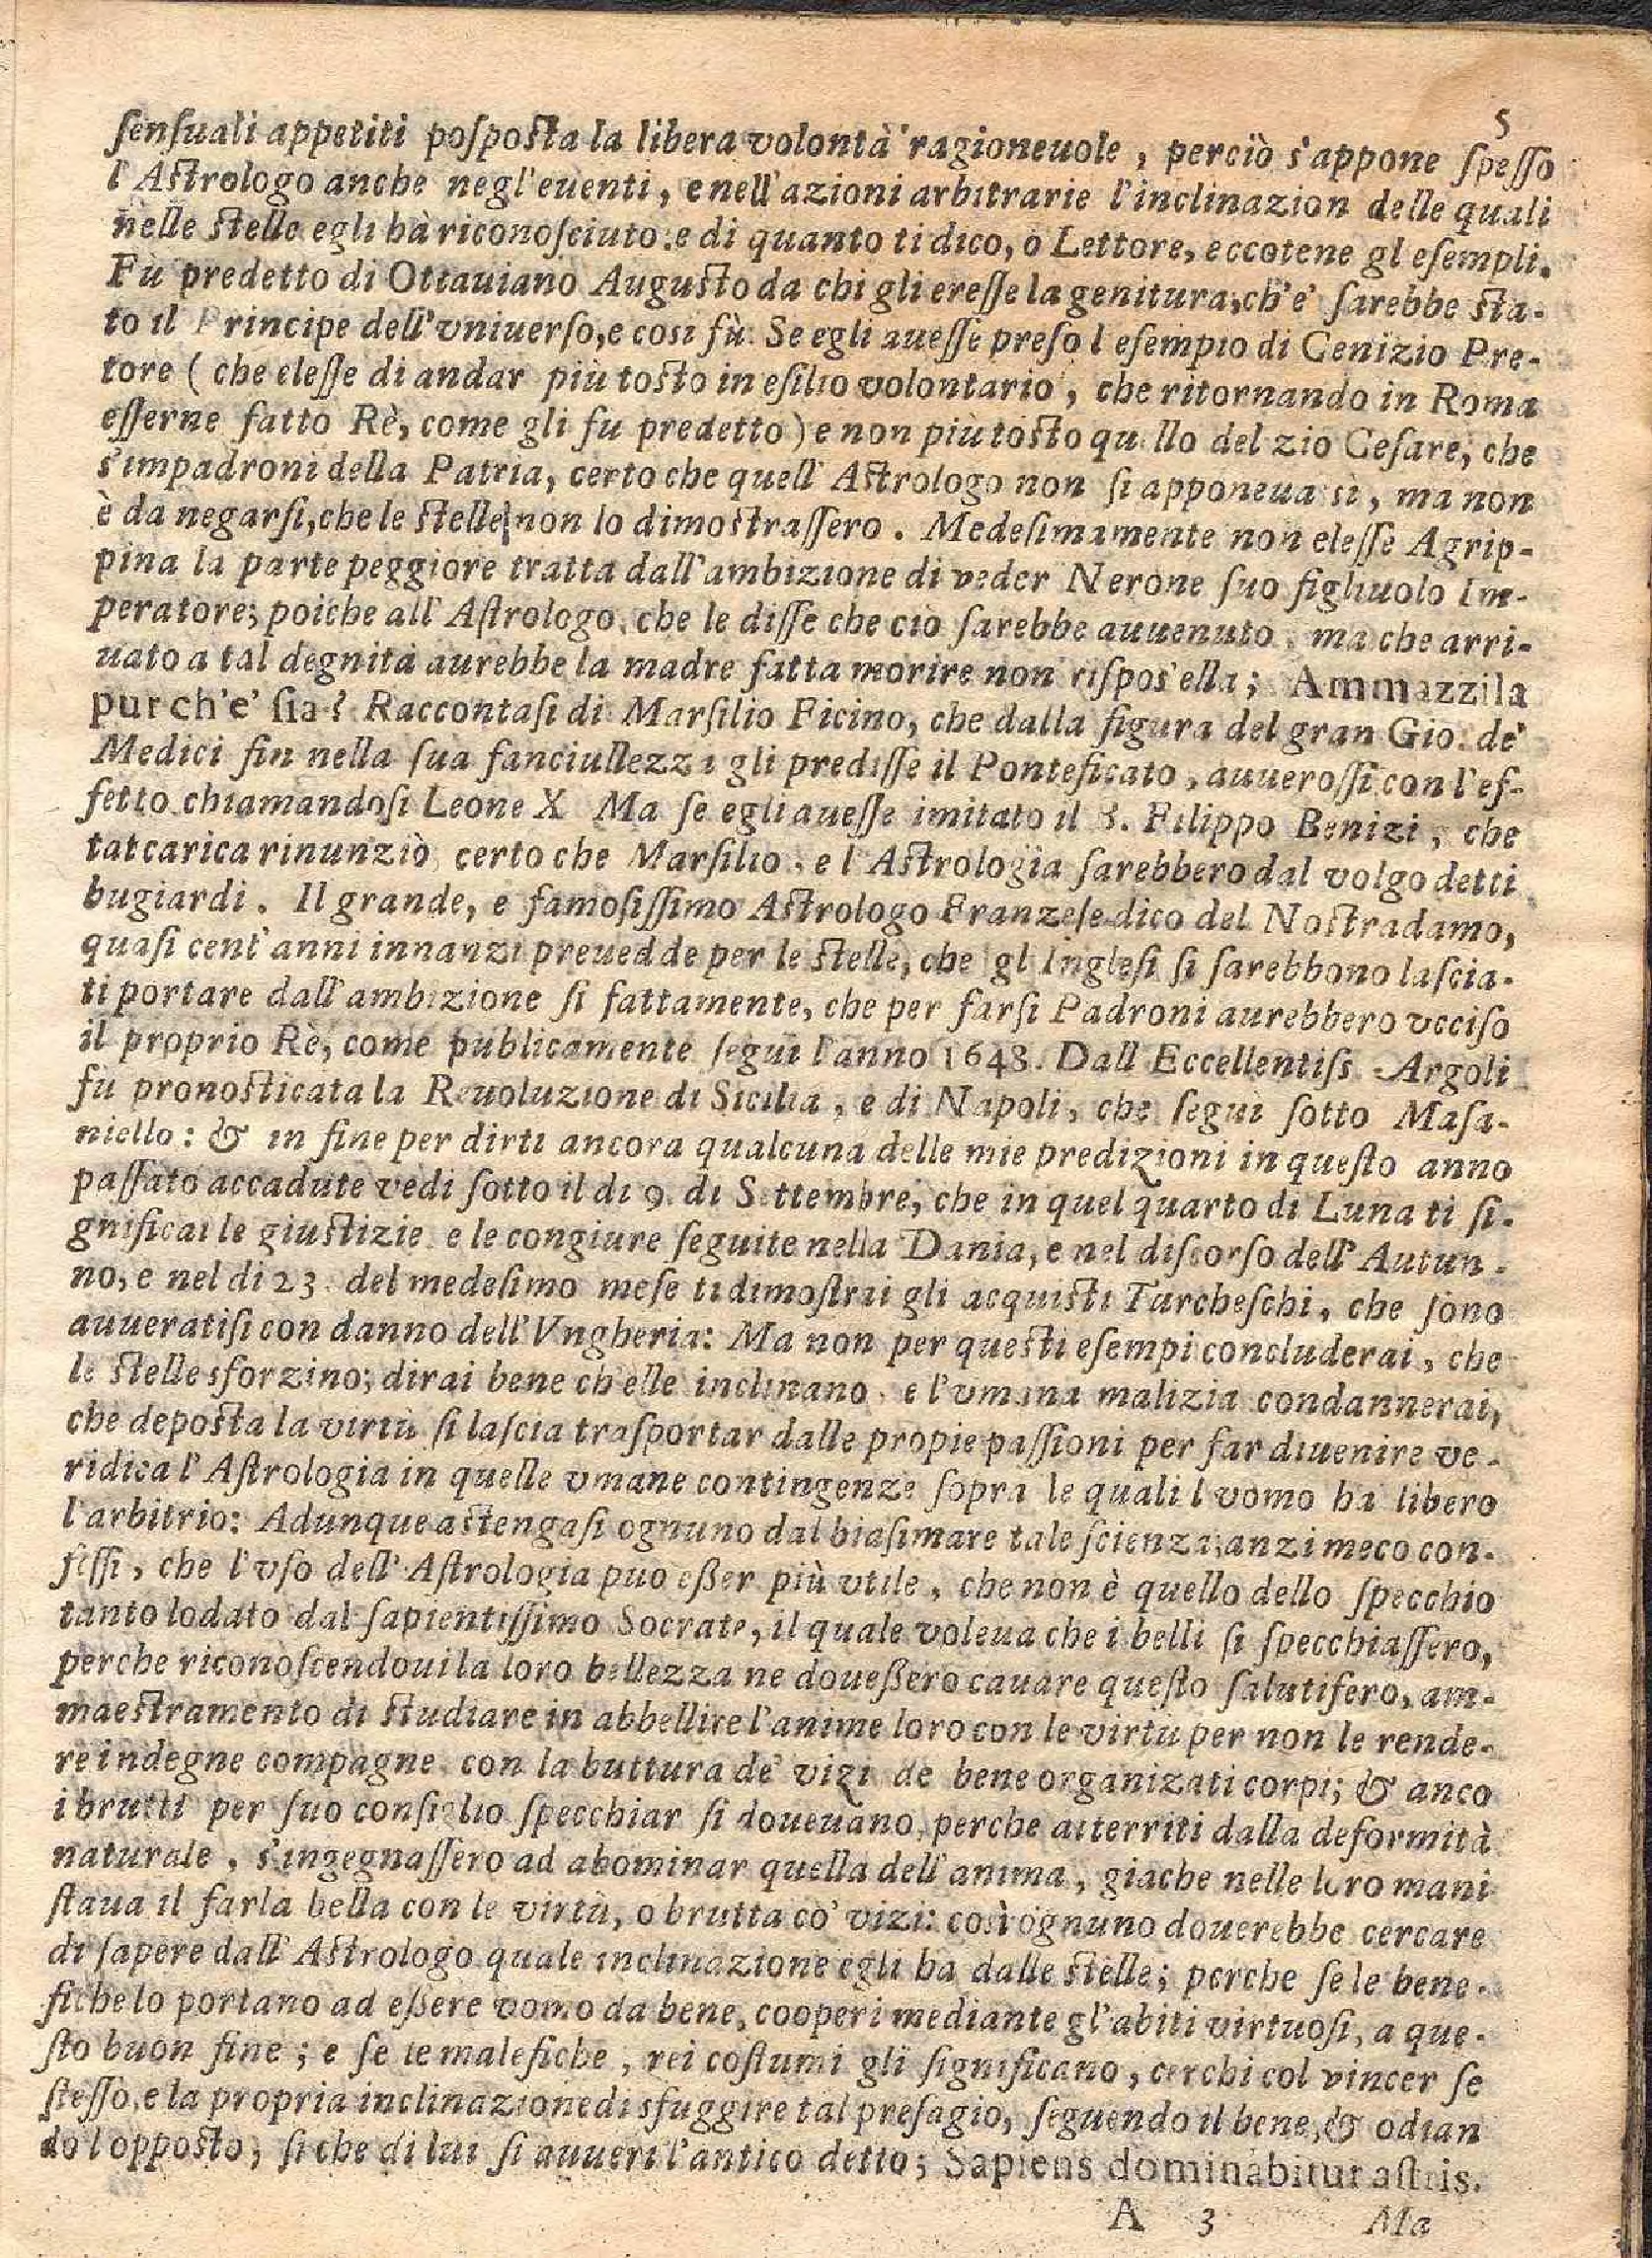 5
ſenſuali appetiti poſpoſta la libera volontà ragioneuole, perciò s'appone ſpeſſo
l'Aſtrologo anche negl'euenti, e nell'azioni arbitrarie l'inclinazion delle quali
nelle ſtelle egli hà riconoſciuto: e di quanto ti dico, o Lettore, eccotene gl eſempli.
Fù predetto di Ottauiano Auguſto da chi gli ereſſe la genitura, ch'e' ſarebbe ſta-
to il Principe dell'vniuerſo, e cosi fù. Se egli aueſſe preſo l eſempio di Genizio Pre-
tore (che eleſſe di andar più toſto in eſilio volontario, che ritornando in Roma
eſſerne fatto Rè, come gli fu predetto) e non più toſto qu llo del zio Ceſare, che
s'impadronì della Patria, certo che quell' Aſtrologo non ſi apponeua sì, ma non
è da negarſi, che le ſtelle non lo dimoſtraſſero. Medeſimamente non eleſſe Agrip-
pina la parte peggiore tratta dall'ambizione di veder Nerone ſuo figliuolo Im-
peratore; poiche all' Aſtrologo, che le diſſe che ciò ſarebbe auuenuto, ma che arri-
uato a tal degnità aurebbe la madre fatta morire non riſpos'ella; Ammazzila
pur ch'e' ſia? Raccontaſi di Marſilio Ficino, che dalla figura del gran Gio. de'
Medici fin nella ſua fanciullezza gli prediſſe il Ponteficato, auueroſſi con l'ef-
fetto chiamandoſi Leone X Ma ſe egli aueſſe imitato il S. Filippo Benizi, che
tat carica rinunziò, certo che Marſilio, e l'Aſtrologia ſarebbero dal volgo detti
bugiardi. Il grande, e famoſiſſimo Aſtrologo Franzeſe dico del Noſtradamo,
quaſi cent'anni innanzi preuedde per le ſtelle, che gl Ingleſi ſi ſarebbono laſcia-
ti portare dall'ambizione ſi fattamente, che per farſi Padroni aurebbero vcciſo
il proprio Rè, come publicamente ſeguì l'anno 1648. Dall Eccellentiſs. Argoli
fù pronoſticata la Reuoluzione di Sicilia, e di Napoli, che ſeguì ſotto Maſa-
niello: & in fine per dirti ancora qualcuna delle mie predizioni in queſto anno
paſſato accadute vedi ſotto il dì 9. di Settembre, che in quel quarto di Luna ti ſi-
gnificai le giuſtizie e le congiure ſeguite nella Dania, e nel diſcorſo dell' Autun-
no, e nel di 23. del medeſimo meſe ti dimoſtrai gli acquiſti Turcheſchi, che ſono
auueratiſi con danno dell'Vngheria: Ma non per queſti eſempi concluderai, che
le ſtelle sforzino; dirai bene ch'elle inclinano, e l'vmana malizia condannerai,
che depoſta la virtù ſi laſcia traſportar dalle propie paſſioni per far diuenire ve-
ridica l'Aſtrologia in quelle vmane contingenze ſopra le quali l vomo ha libero
l'arbitrio: Adunque aſtengaſi ognuno dal biaſimare tale ſcienza; anzi meco con-
feſſi, che l'vſo dell' Aſtrologia puo eßer più vtile, che non è quello dello ſpecchio
tanto lodato dal ſapientiſſimo Socrate, il quale voleua che i belli ſi ſpecchiaſſero,
perche riconoſcendoui la loro bellezza ne doueßero cauare queſto ſalutifero, am-
maeſtramento di ſtudiare in abbellire l'anime loro con le virtù per non le rende-
re indegne compagne, con la buttura de' vizi de bene organizati corpi; & anco
i brutti per ſuo conſiglio ſpecchiar ſi doueuano, perche atterriti dalla deformità
naturale, s'ingegnaſſero ad abominar quella dell'anima, giache nelle loro mani
ſtaua il farla bella con le virtù, o brutta co' vizi: così ognuno douerebbe cercare
di ſapere dall' Aſtrologo quale inclinazione egli ha dalle ſtelle; perche ſe le bene-
fiche lo portano ad eßere vomo da bene, cooperi mediante gl'abiti virtuoſi, a que-
ſto buon fine; e ſe le malefiche, rei coſtumi gli ſignificano, cerchi col vincer ſe
ſteſſo, e la propria inclinazione di sfuggire tal preſagio, ſeguendo il bene, & odian
do l oppoſto, ſi che di lui ſi auueri l'antico detto; Sapiens dominabitur aſtris.
A 3 Ma